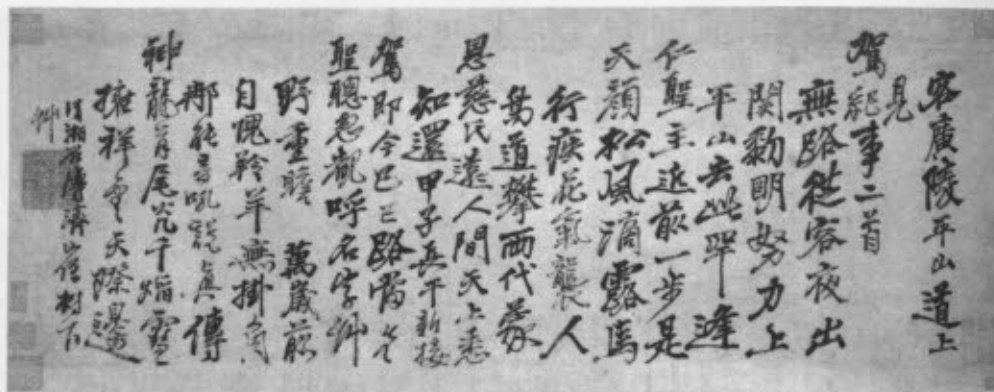 客廣陵平山道上
見
駕紀事二首
無路從容夜出
關黎明努力上
平山去此罕逢
仁聖主近前一步是
天顏松風滴露馬
行疾花氣襲人
鳥道攀兩代蒙
恩慈氏遠人間天上悉
知還甲子長干新接
駕即今己巳路當先
聖聰忽覩呼名字艸
野重瞻 萬歲前
自愧羚羊無掛角
那能音吼說真傳
神龍首尾光千焰雲
擁祥雲天際邊
清湘石濤濟樹下
艸